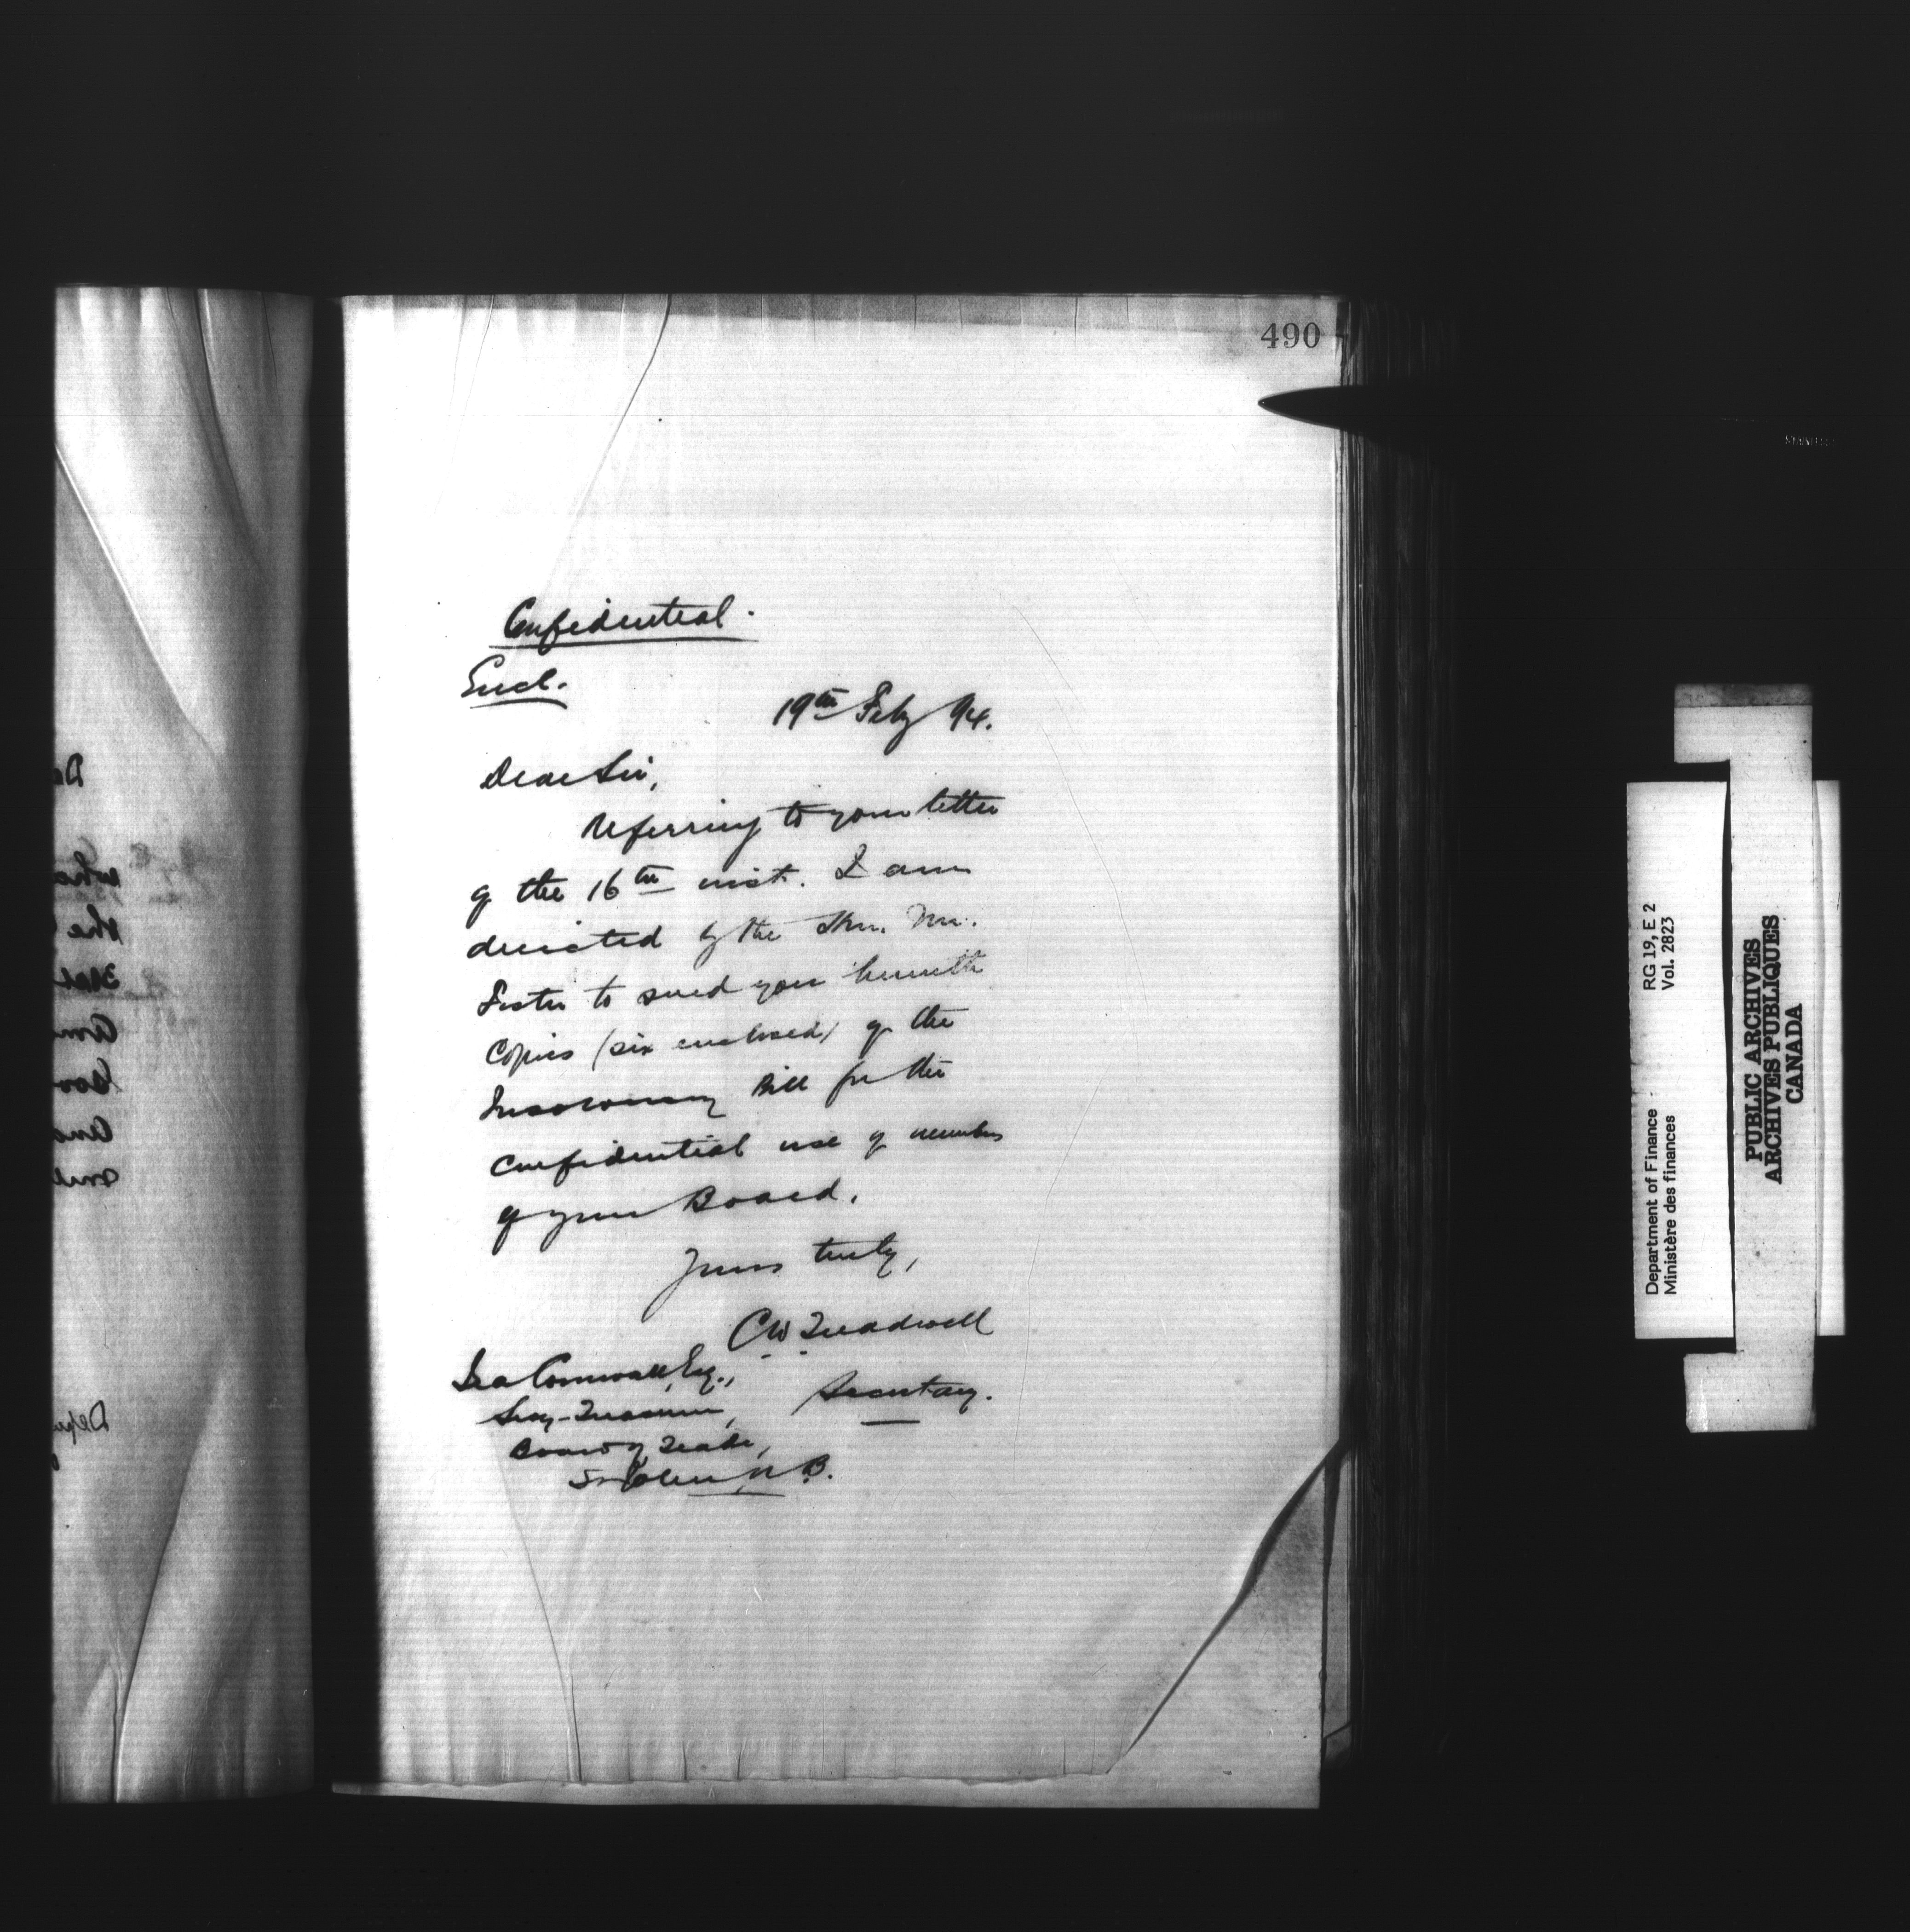 490
Confidential.
Encl.
19th Feby 94.
Dear Sir,
Referring to your letter
of the 16th inst. I am
directed by the Hon. Mr.
Foster to send you herewith
Copies (six enclosed) of the
Insolvency Bill for the
Confidential use of members
of your Board.
Yours truly,
CW Treadwell
Secretary.
Ira Cornwall, Esq.,
Secy-Treasurer,
Board of Trade,
St John, N.B.
Department of Finance RG 19, E 2
Ministère des finances Vol. 2823
PUBLIC ARCHIVES
ARCHIVES PUBLIQUES
CANADA